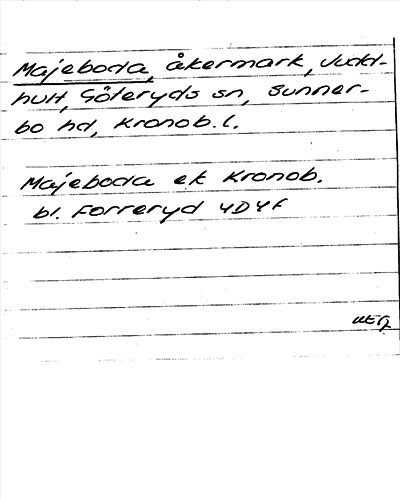 Majeboda, åkermark, Judd-
hult, Göteryds sn, Sunner-
bo hd, Kronob.l.
Majeboda ek Kronob.
bl. Forreryd 4D4f